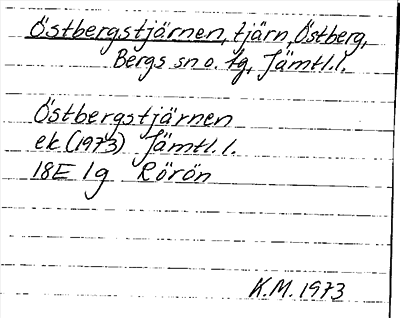 Östbergstjärnen, tjärn, Östberg,
Bergs sn o. tg, Jämtl.l.
Östbergstjärnen
ek (1973) Jämtl.l.
18E 1g Rörön
K.M. 1973